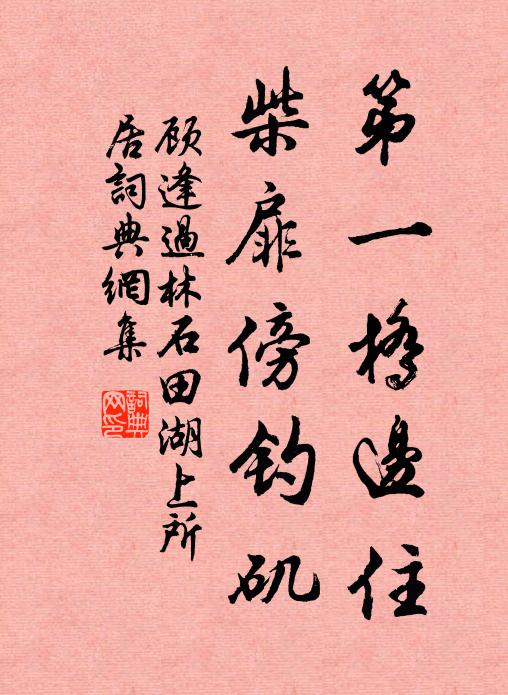 第一橋邊住
柴扉傍釣矶
顾逢過林石田湖上所
居詞典網集
詞典
网印